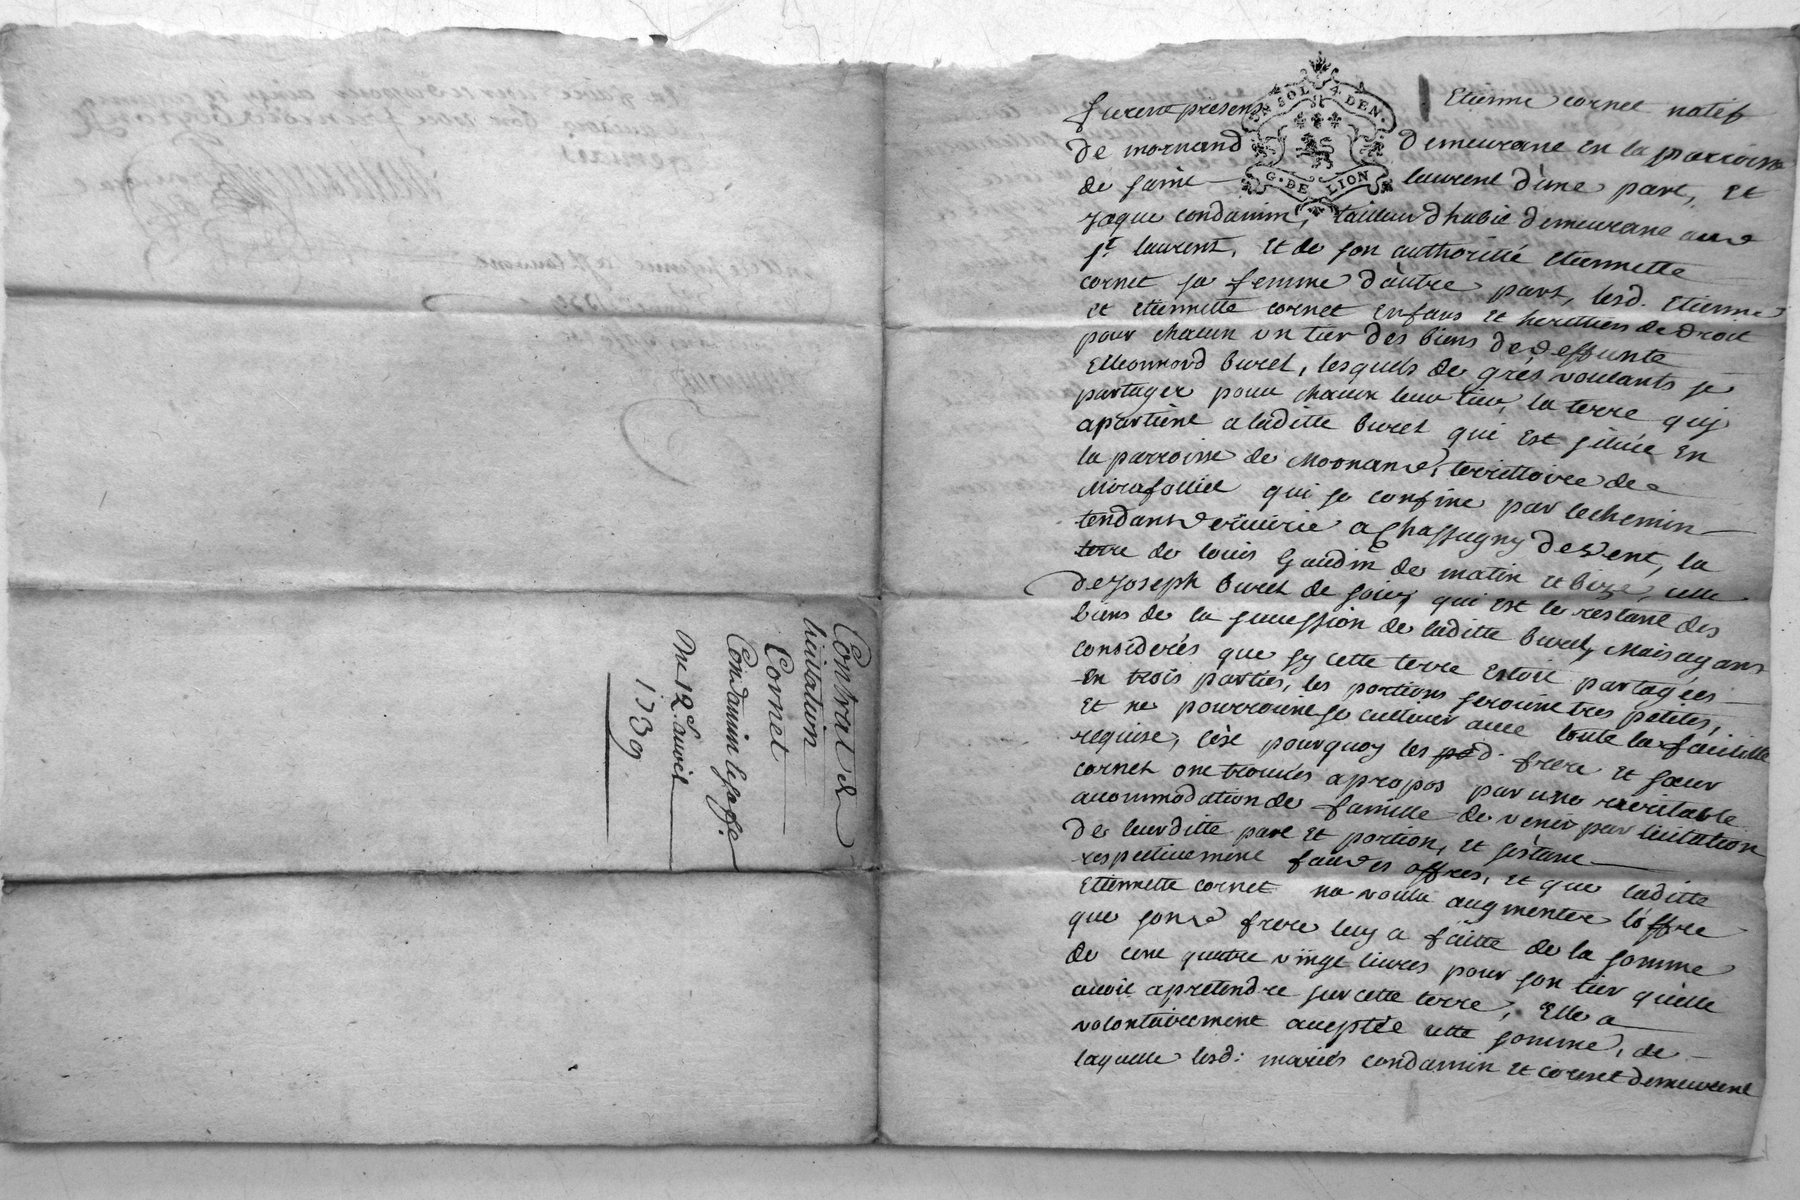 Contrat de
licitation
Cornet
Condamin le sage
Du 12e. avril
1739
UN SOL 4 DEN.
G. DE LION
furent presens Etienne cornet natif
de mornand demeurant en la parroisse
de saint laurent d'une part, Et
Jaque condamin, tailleur d'habit demeurant aud
st. laurent, Et de son authorité etiennette
cornet sa femme d'autre part, lesd. Etienne
et etiennette cornet enfans et heritiers de droit
pour chacun un tier des biens de deffunte
Elleonnord buret, lesquels de grés voulants se
partager pour chacun leur tier, la terre quj
apartient a laditte buret qui est située En
la parroisse de Mornand, territtoire de
Mirafolliet qui se confine par le chemin
tendant a Chassagny de vent, la
terre de louis Gaudin de matin et bize, celle
de Joseph buret de soir, qui est le restant des
biens de la succession de laditte buret, Mais ayans
considerés que sy cette terre Estoit partagées
En trois parties, les portions seroint tres petites,
Et ne pourroint se cultiver avec toute la facilitée
requise, c'est pourquoy lesd. frere et sœur
cornet ont trouvés apropos par une veritable
acommodation de famille de venir par licitation
de leurditte part et portion, et s'étant
respectivement fait des offres, et que laditte
Etiennette cornet na voulu augmenter l'offre
que sond frere luy a faitte de la somme
de cent quatre vingt livres pour son tier qu'elle
avoit apretendre sur cette terre, Elle a
volontairement acceptée cette somme, de
laquelle lesd: mariés condamin et cornet demeurent